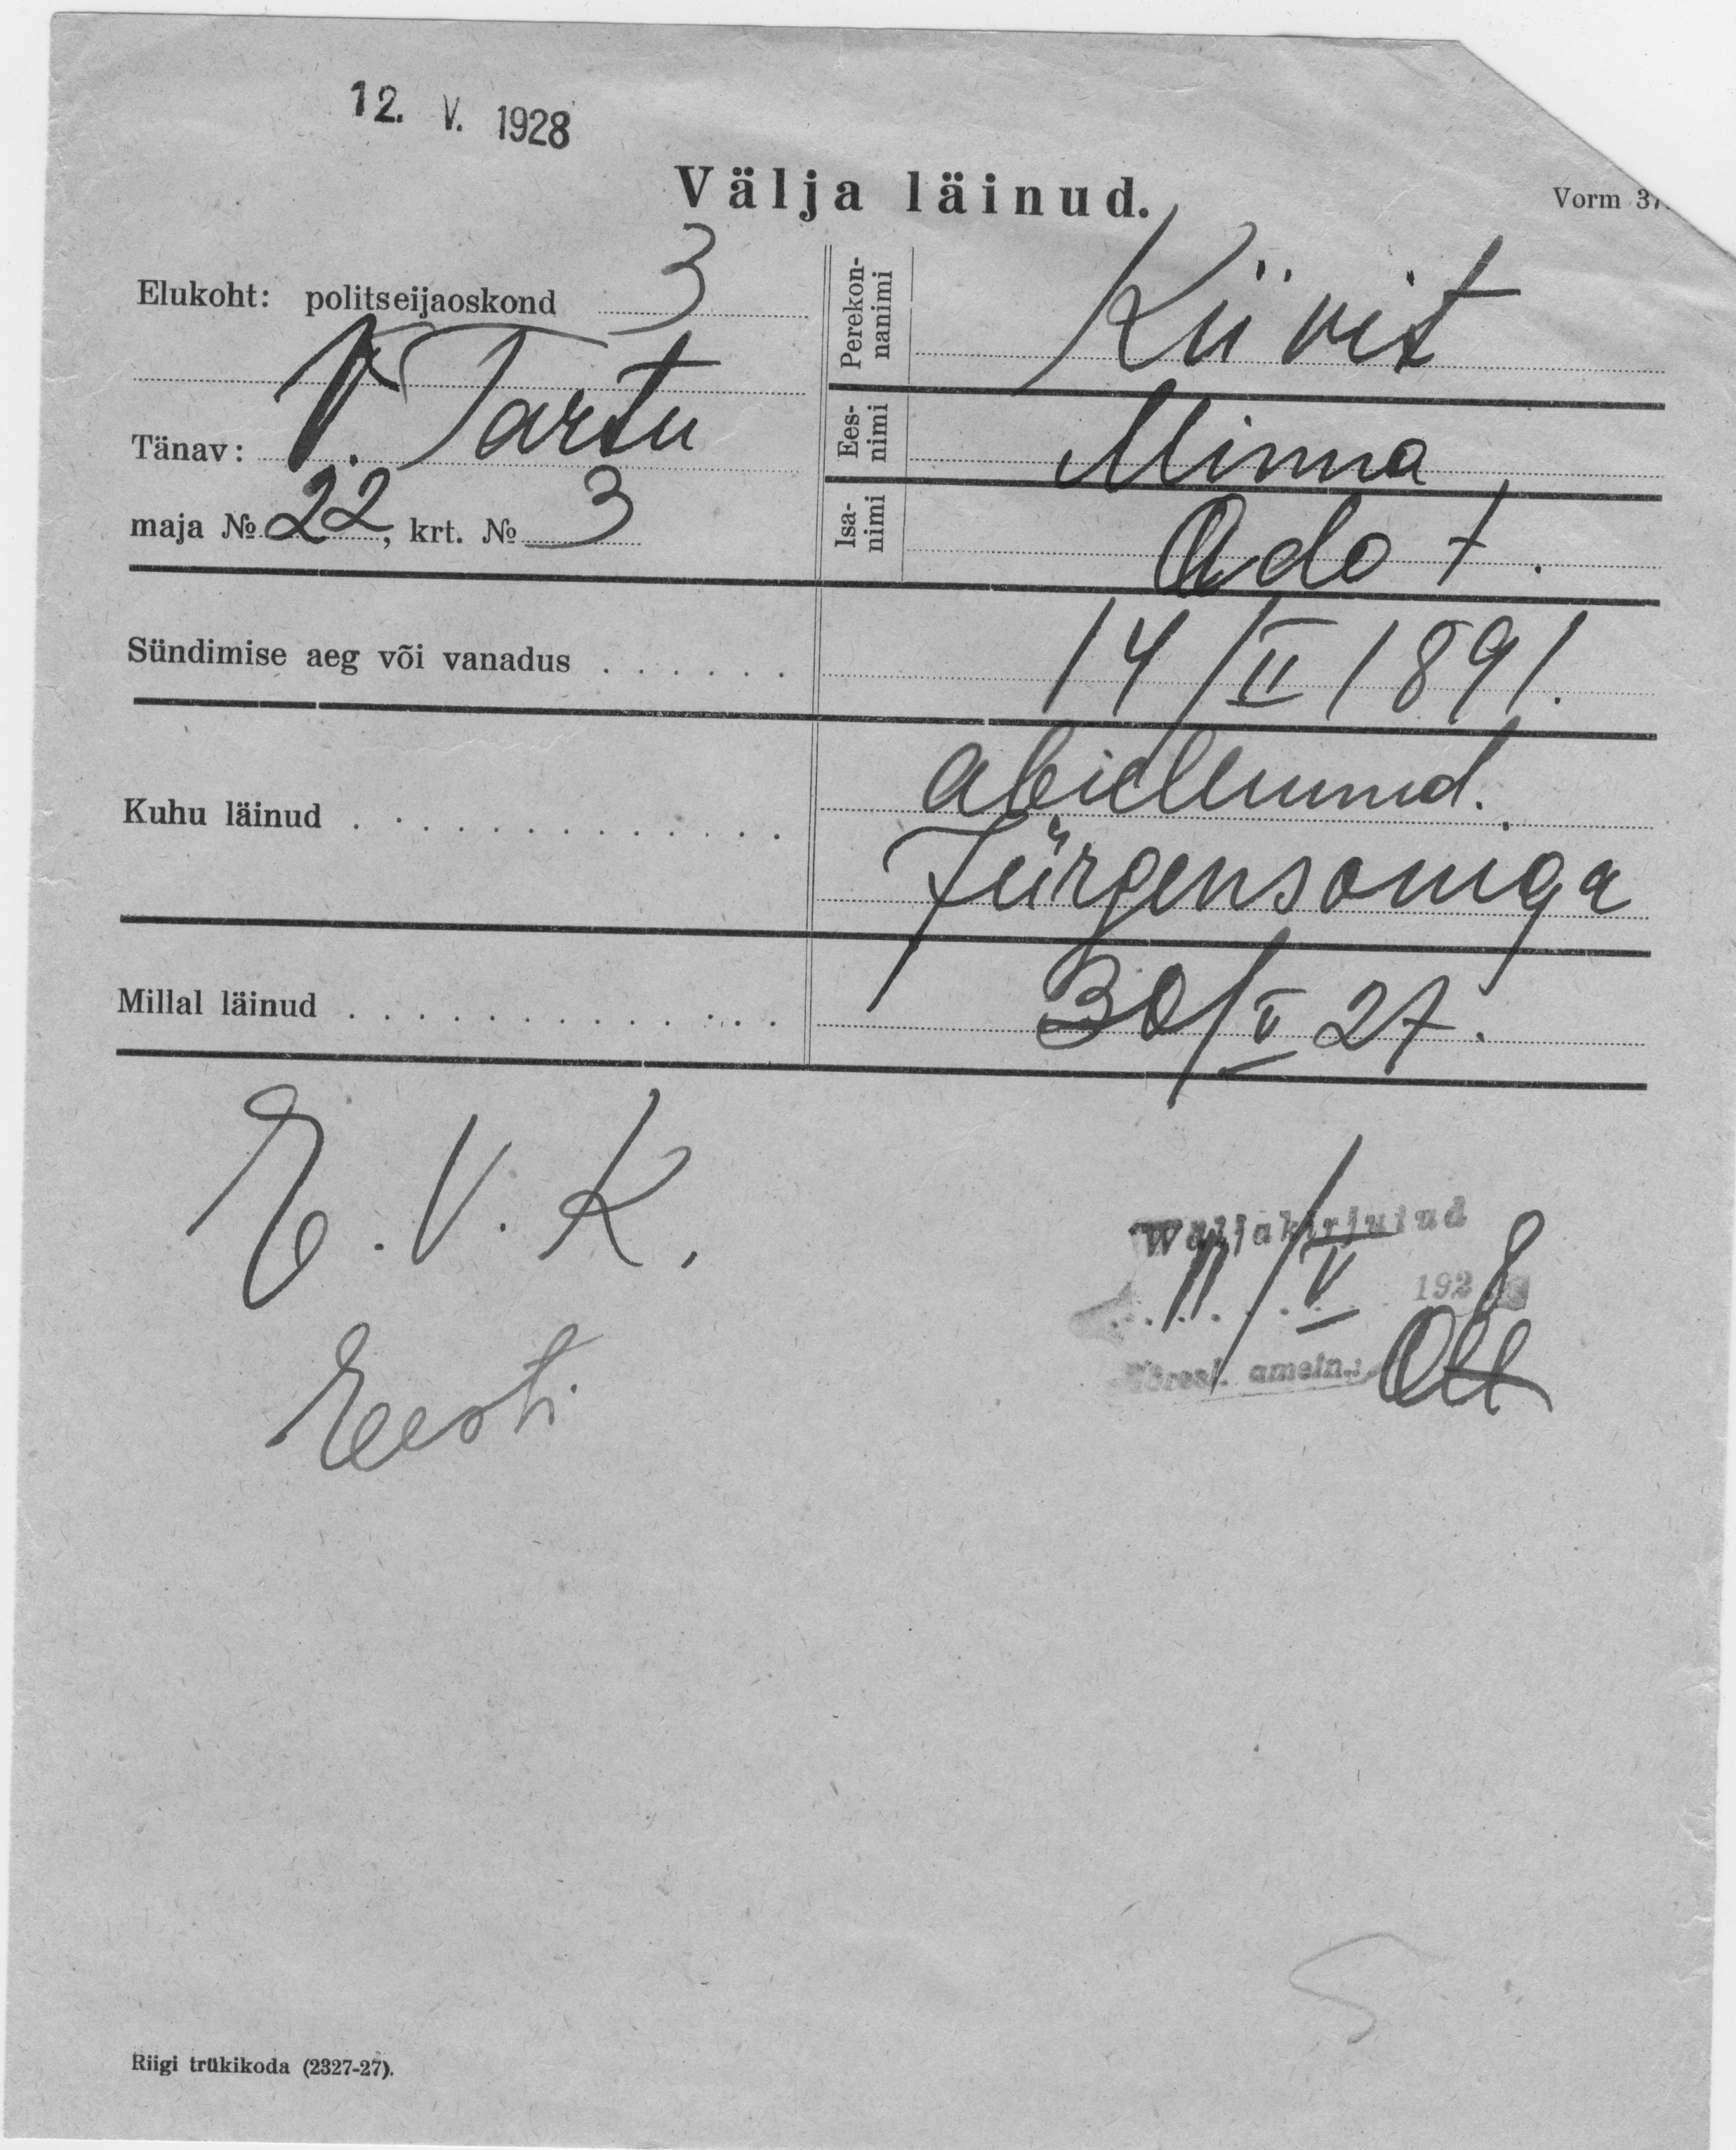 12. V. 1928
Välja läinud.
Vorm
Elukoht: politseijaoskond 3
Tänav: V. Tartu
maja № 22, krt. № 3
Perekon-
nanimi
Kiivit
Ees-
nimi
Minna
Isa-
nimi
Ado t.
Sündimise aeg või vanadus . . . . . . 14/II 1891.
Kuhu läinud . . . . . . . . . . . . . abiellunud.
Jürgensoniga
Millal läinud . . . . . . . . . . . . . 30/V 27.
E. V. K.
Eesti
Wäljakirjutud
11/V 1928
ametn.: Ott
Riigi trükikoda (2327-27).